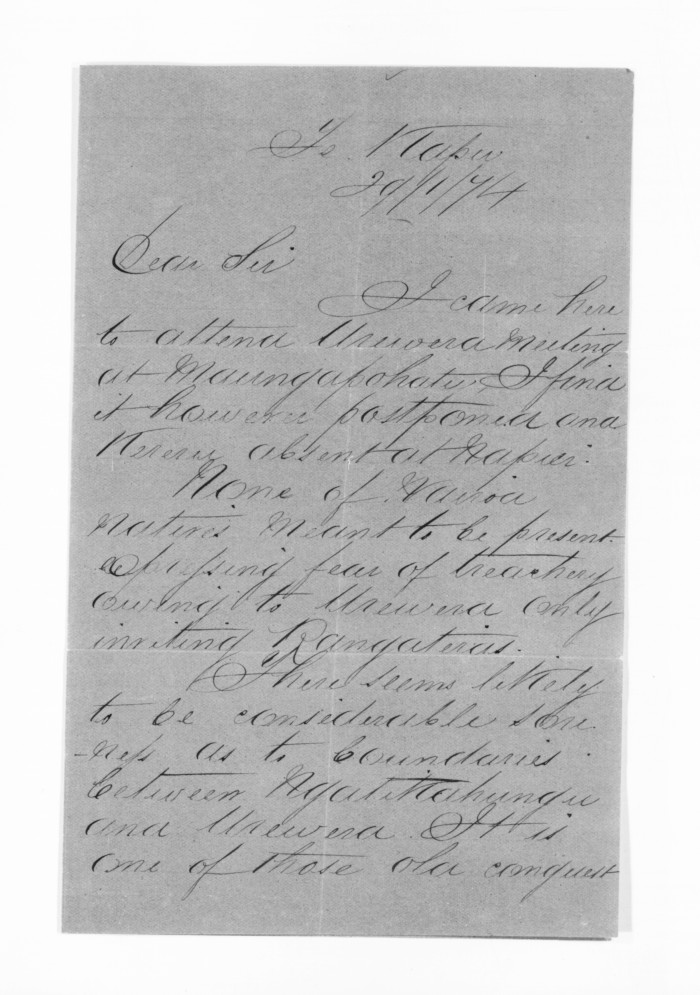 Te Kapu
29/1/74
Dear Sir
I came here
to attend Urewera Meeting
at Maungapohatu. I find
it however postponed and
Kereru absent at Napier.
None of Wairoa
natives meant to be present
expressing fear of treachery
owing to Urewera only
inviting Rangatiras.
There seems likely
to be considerable sore
-ness as to boundaries
between Ngatikahungu
and Urewera. It is
one of those old conquest